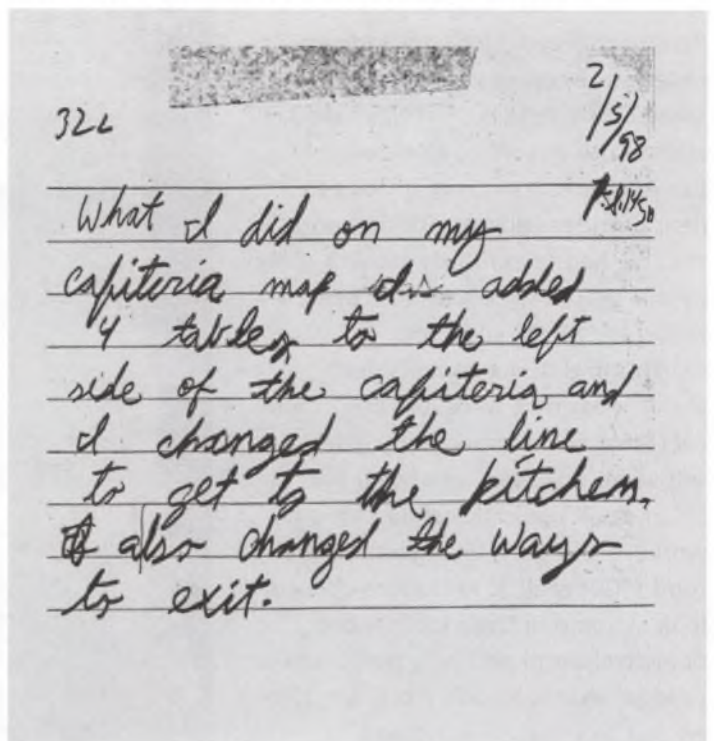 322
2/5/98
What I did on my
cafiteria map is added
4 tables to the left
side of the cafiteria and
I changed the line
to get to the kitchen.
I also changed the ways
to exit.